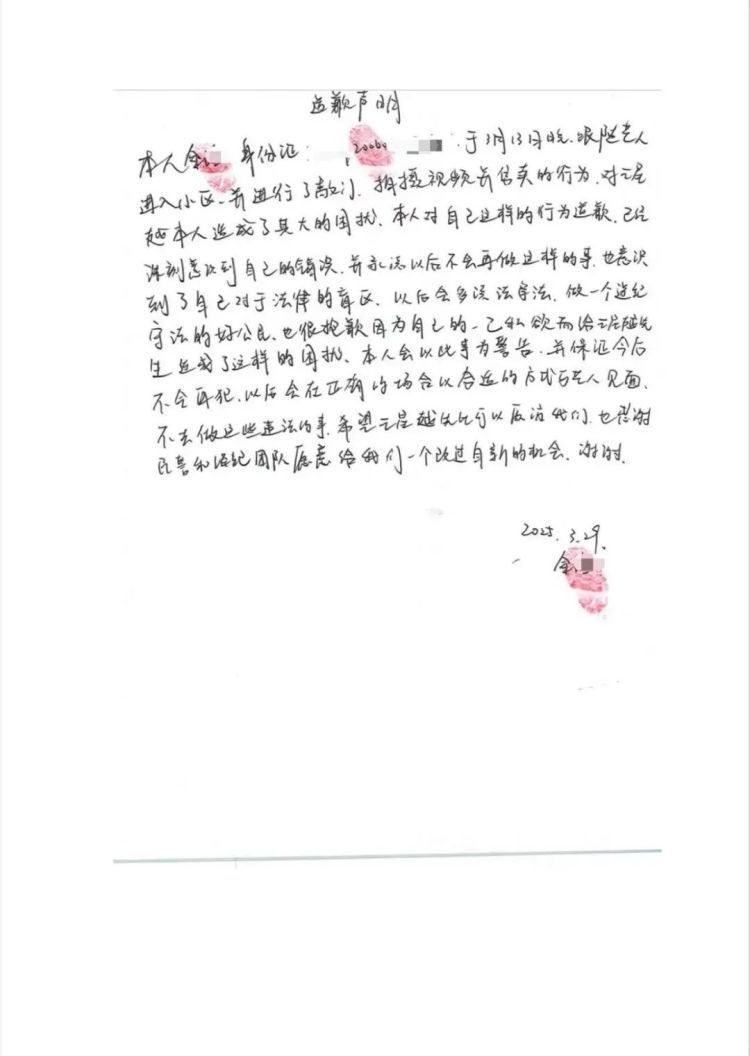 道歉声明
本人金 身份证: 2006 .于3月13日晚.跟随艺人
进入小区.并进行了敲门.拍摄视频并售卖的行为.对王星
越本人造成了莫大的困扰.本人对自己这样的行为道歉.已经
深刻意识到自己的错误.并永远以后不会再做这样的事.也意识
到了自己对于法律的盲区.以后会多读法守法.做一个遵纪
守法的好公民.也很抱歉因为自己的一己私欲而给王星越先
生造成了这样的困扰.本人会以此事为警告.并保证今后
不会再犯.以后会在正确的场合以合适的方式与艺人见面.
不去做这些违法的事.希望王星越先生可以原谅我们.也感谢
民警和经纪团队愿意给我们一个改过自新的机会.谢谢.
2025.3.29.
金